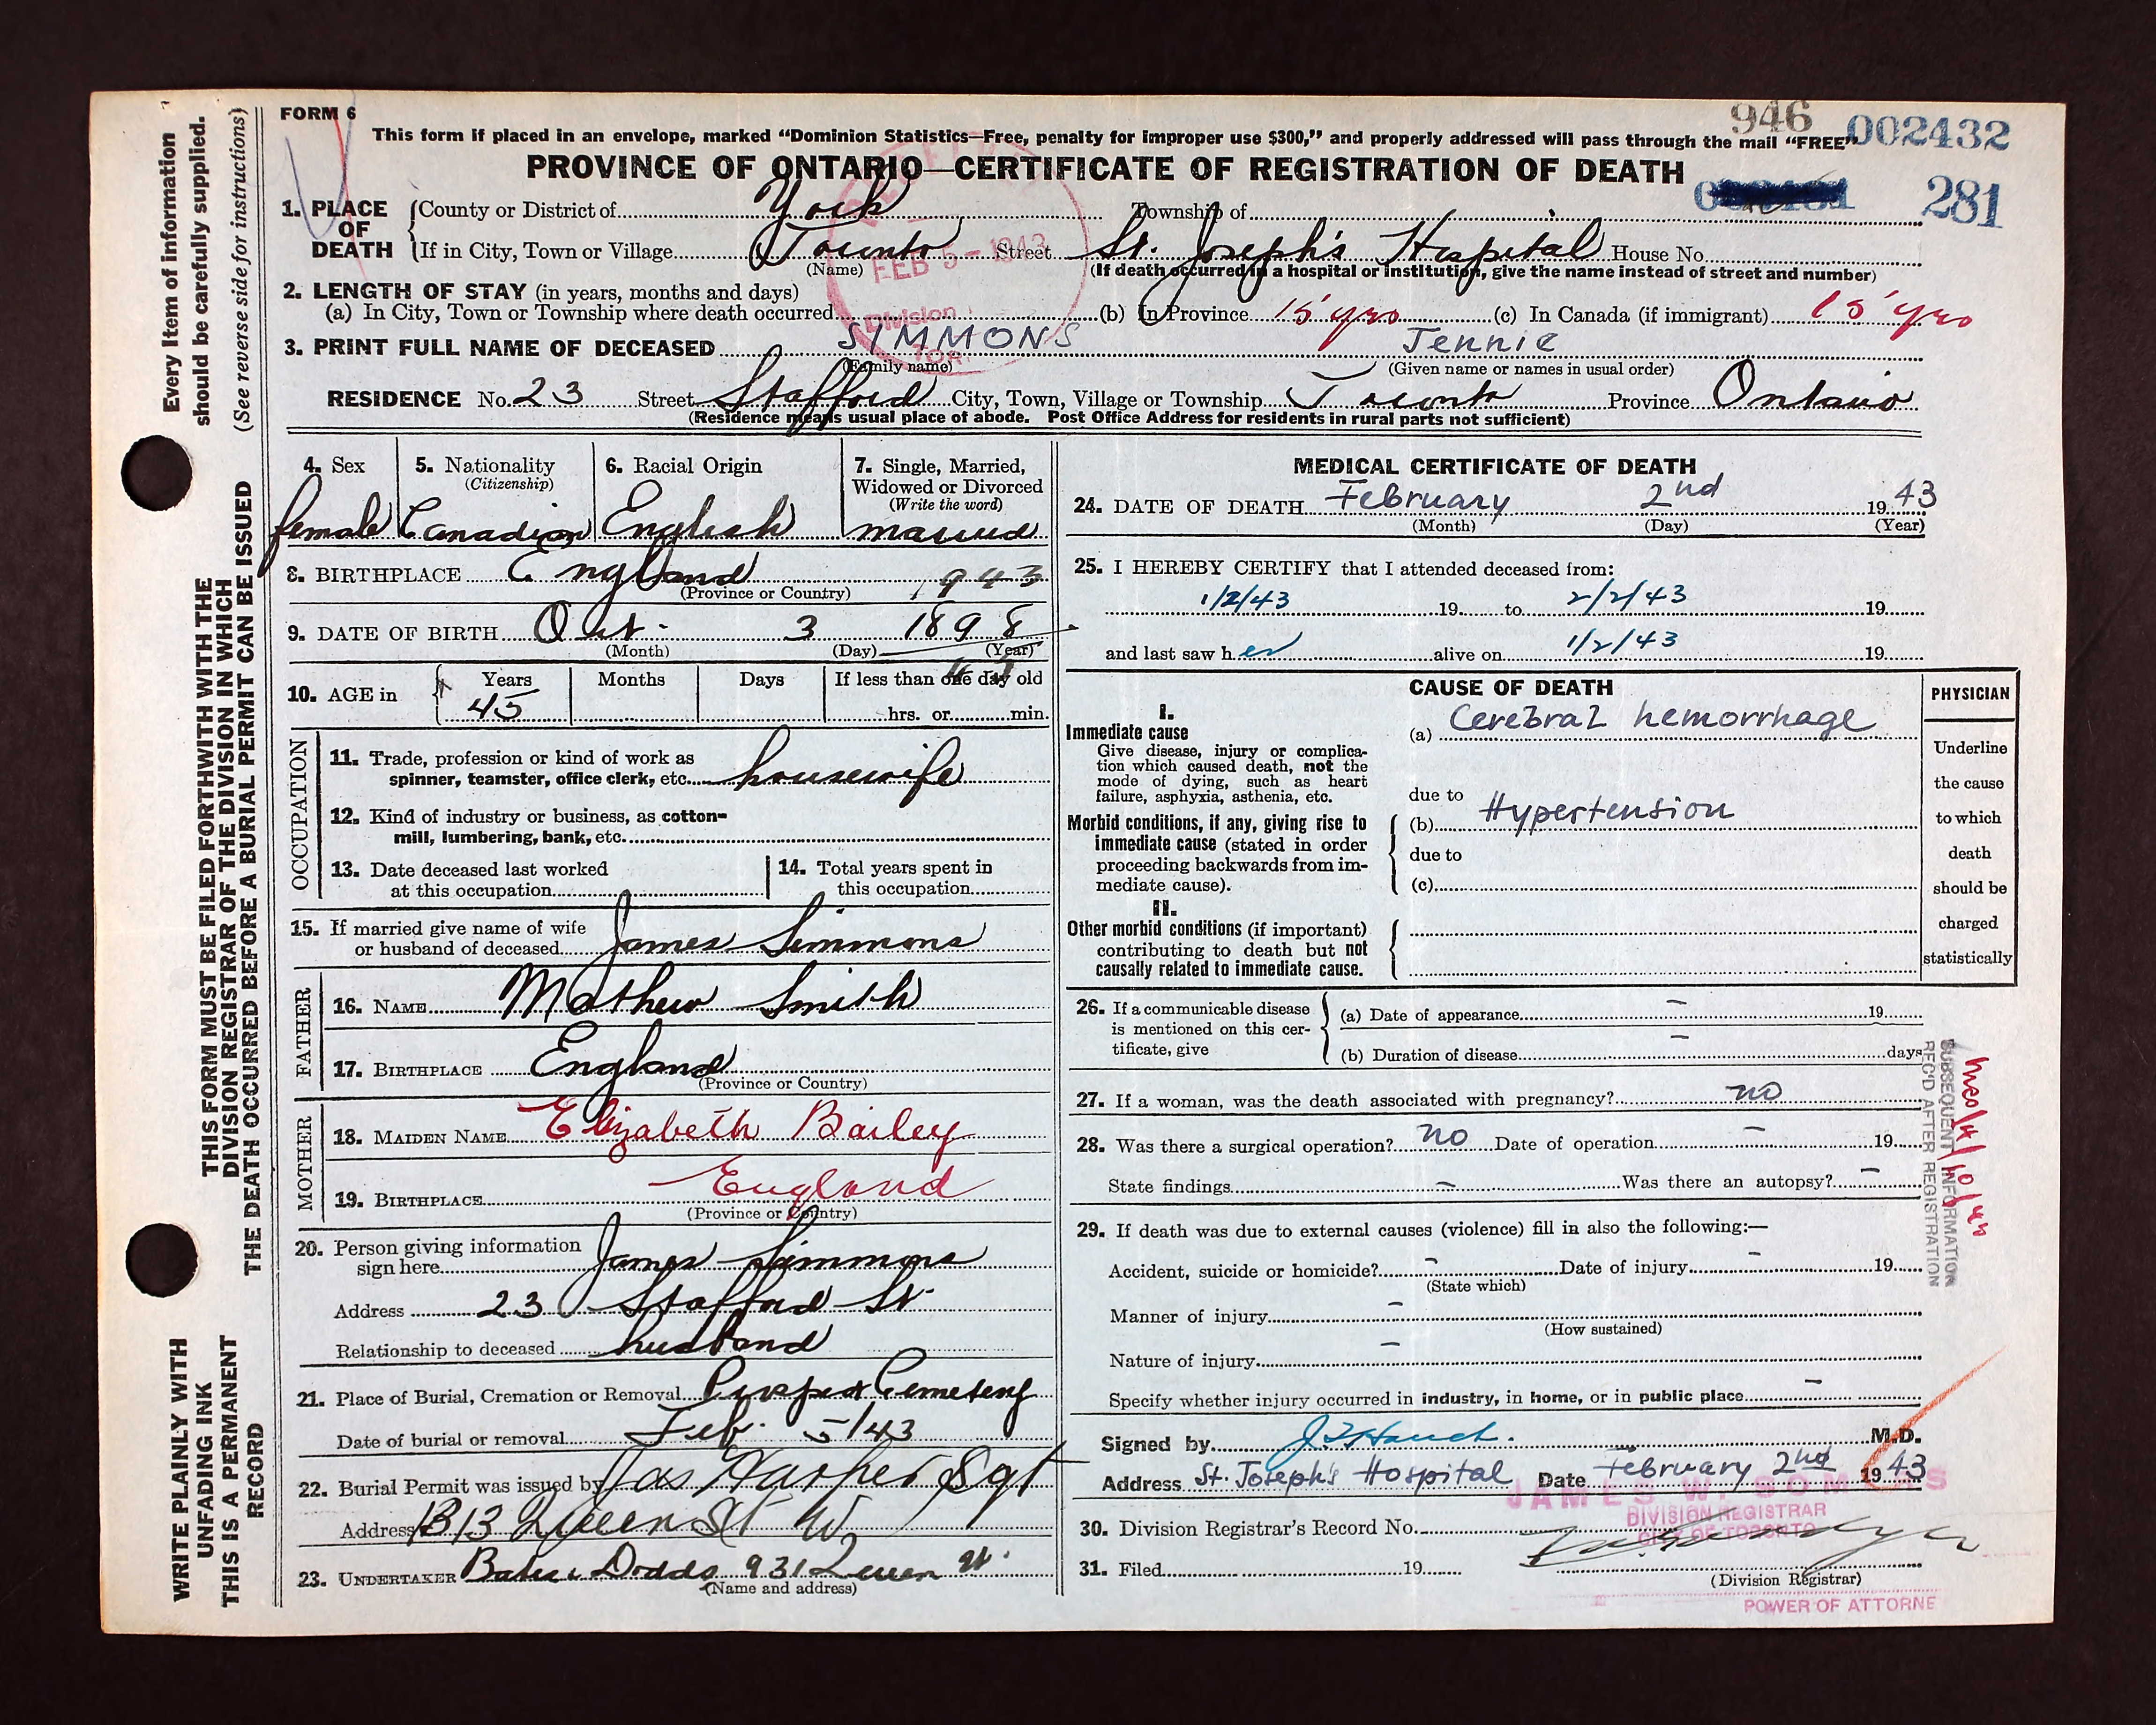 FORM 6
946 002432
This form if placed in an envelope, marked “Dominion Statistics—Free, penalty for improper use $300,” and properly addressed will pass through the mail “FREE”
PROVINCE OF ONTARIO—CERTIFICATE OF REGISTRATION OF DEATH
281
1. PLACE OF DEATH
County or District of York Township of
If in City, Town or Village Toronto Street St. Joseph's Hospital House No.
(Name) (If death occurred in a hospital or institution, give the name instead of street and number)
FEB 5 - 1943
Division
2. LENGTH OF STAY (in years, months and days)
(a) In City, Town or Township where death occurred (b) In Province 15 yrs (c) In Canada (if immigrant) 15 yrs
3. PRINT FULL NAME OF DECEASED SIMMONS Jennie
(Family name) (Given name or names in usual order)
RESIDENCE No. 23 Street Stafford City, Town, Village or Township Toronto Province Ontario
(Residence means usual place of abode. Post Office Address for residents in rural parts not sufficient)
4. Sex
female
5. Nationality
(Citizenship)
Canadian
6. Racial Origin
English
7. Single, Married,
Widowed or Divorced
(Write the word)
married
8. BIRTHPLACE England
(Province or Country) 1943
9. DATE OF BIRTH Oct. 3 1898
(Month) (Day) (Year)
10. AGE in
Years Months Days If less than one day old
45 hrs. or min.
OCCUPATION
11. Trade, profession or kind of work as
spinner, teamster, office clerk, etc. housewife
12. Kind of industry or business, as cotton-
mill, lumbering, bank, etc.
13. Date deceased last worked
at this occupation
14. Total years spent in
this occupation
15. If married give name of wife
or husband of deceased James Simmons
FATHER
16. NAME Mathew Smith
17. BIRTHPLACE England
(Province or Country)
MOTHER
18. MAIDEN NAME Elizabeth Bailey
19. BIRTHPLACE England
(Province or Country)
20. Person giving information
sign here James Simmons
Address 23 Stafford St.
Relationship to deceased husband
21. Place of Burial, Cremation or Removal Prospect Cemetery
Date of burial or removal Feb. 5/43
22. Burial Permit was issued by Jas Harper Sgt
Address 1313 Queen St W.
23. UNDERTAKER Bates & Dodds 931 Queen W.
(Name and address)
MEDICAL CERTIFICATE OF DEATH
24. DATE OF DEATH February 2nd 1943
(Month) (Day) (Year)
25. I HEREBY CERTIFY that I attended deceased from:
1/2/43 19 to 2/2/43 19
and last saw her alive on 1/2/43 19
CAUSE OF DEATH
I.
Immediate cause
Give disease, injury or complica-
tion which caused death, not the
mode of dying, such as heart
failure, asphyxia, asthenia, etc.
(a) Cerebral hemorrhage
due to
Morbid conditions, if any, giving rise to
immediate cause (stated in order
proceeding backwards from im-
mediate cause).
(b) Hypertension
due to
(c)
II.
Other morbid conditions (if important)
contributing to death but not
causally related to immediate cause.
PHYSICIAN
Underline
the cause
to which
death
should be
charged
statistically
26. If a communicable disease
is mentioned on this cer-
tificate, give
(a) Date of appearance – 19
(b) Duration of disease – days
27. If a woman, was the death associated with pregnancy? no
28. Was there a surgical operation? no Date of operation – 19
State findings – Was there an autopsy? –
29. If death was due to external causes (violence) fill in also the following:—
Accident, suicide or homicide? – Date of injury – 19
(State which)
Manner of injury –
(How sustained)
Nature of injury –
Specify whether injury occurred in industry, in home, or in public place –
Signed by M.D.
Address St. Joseph's Hospital Date February 2nd 1943
JAMES W. SOM
DIVISION REGISTRAR
CITY OF TORONTO
30. Division Registrar's Record No.
31. Filed 19
(Division Registrar)
POWER OF ATTORNE
SUBSEQUENT INFORMATION
REC'D AFTER REGISTRATION
Every Item of information
should be carefully supplied.
(See reverse side for instructions)
THIS FORM MUST BE FILED FORTHWITH WITH THE
DIVISION REGISTRAR OF THE DIVISION IN WHICH
THE DEATH OCCURRED BEFORE A BURIAL PERMIT CAN BE ISSUED
WRITE PLAINLY WITH
UNFADING INK
THIS IS A PERMANENT
RECORD